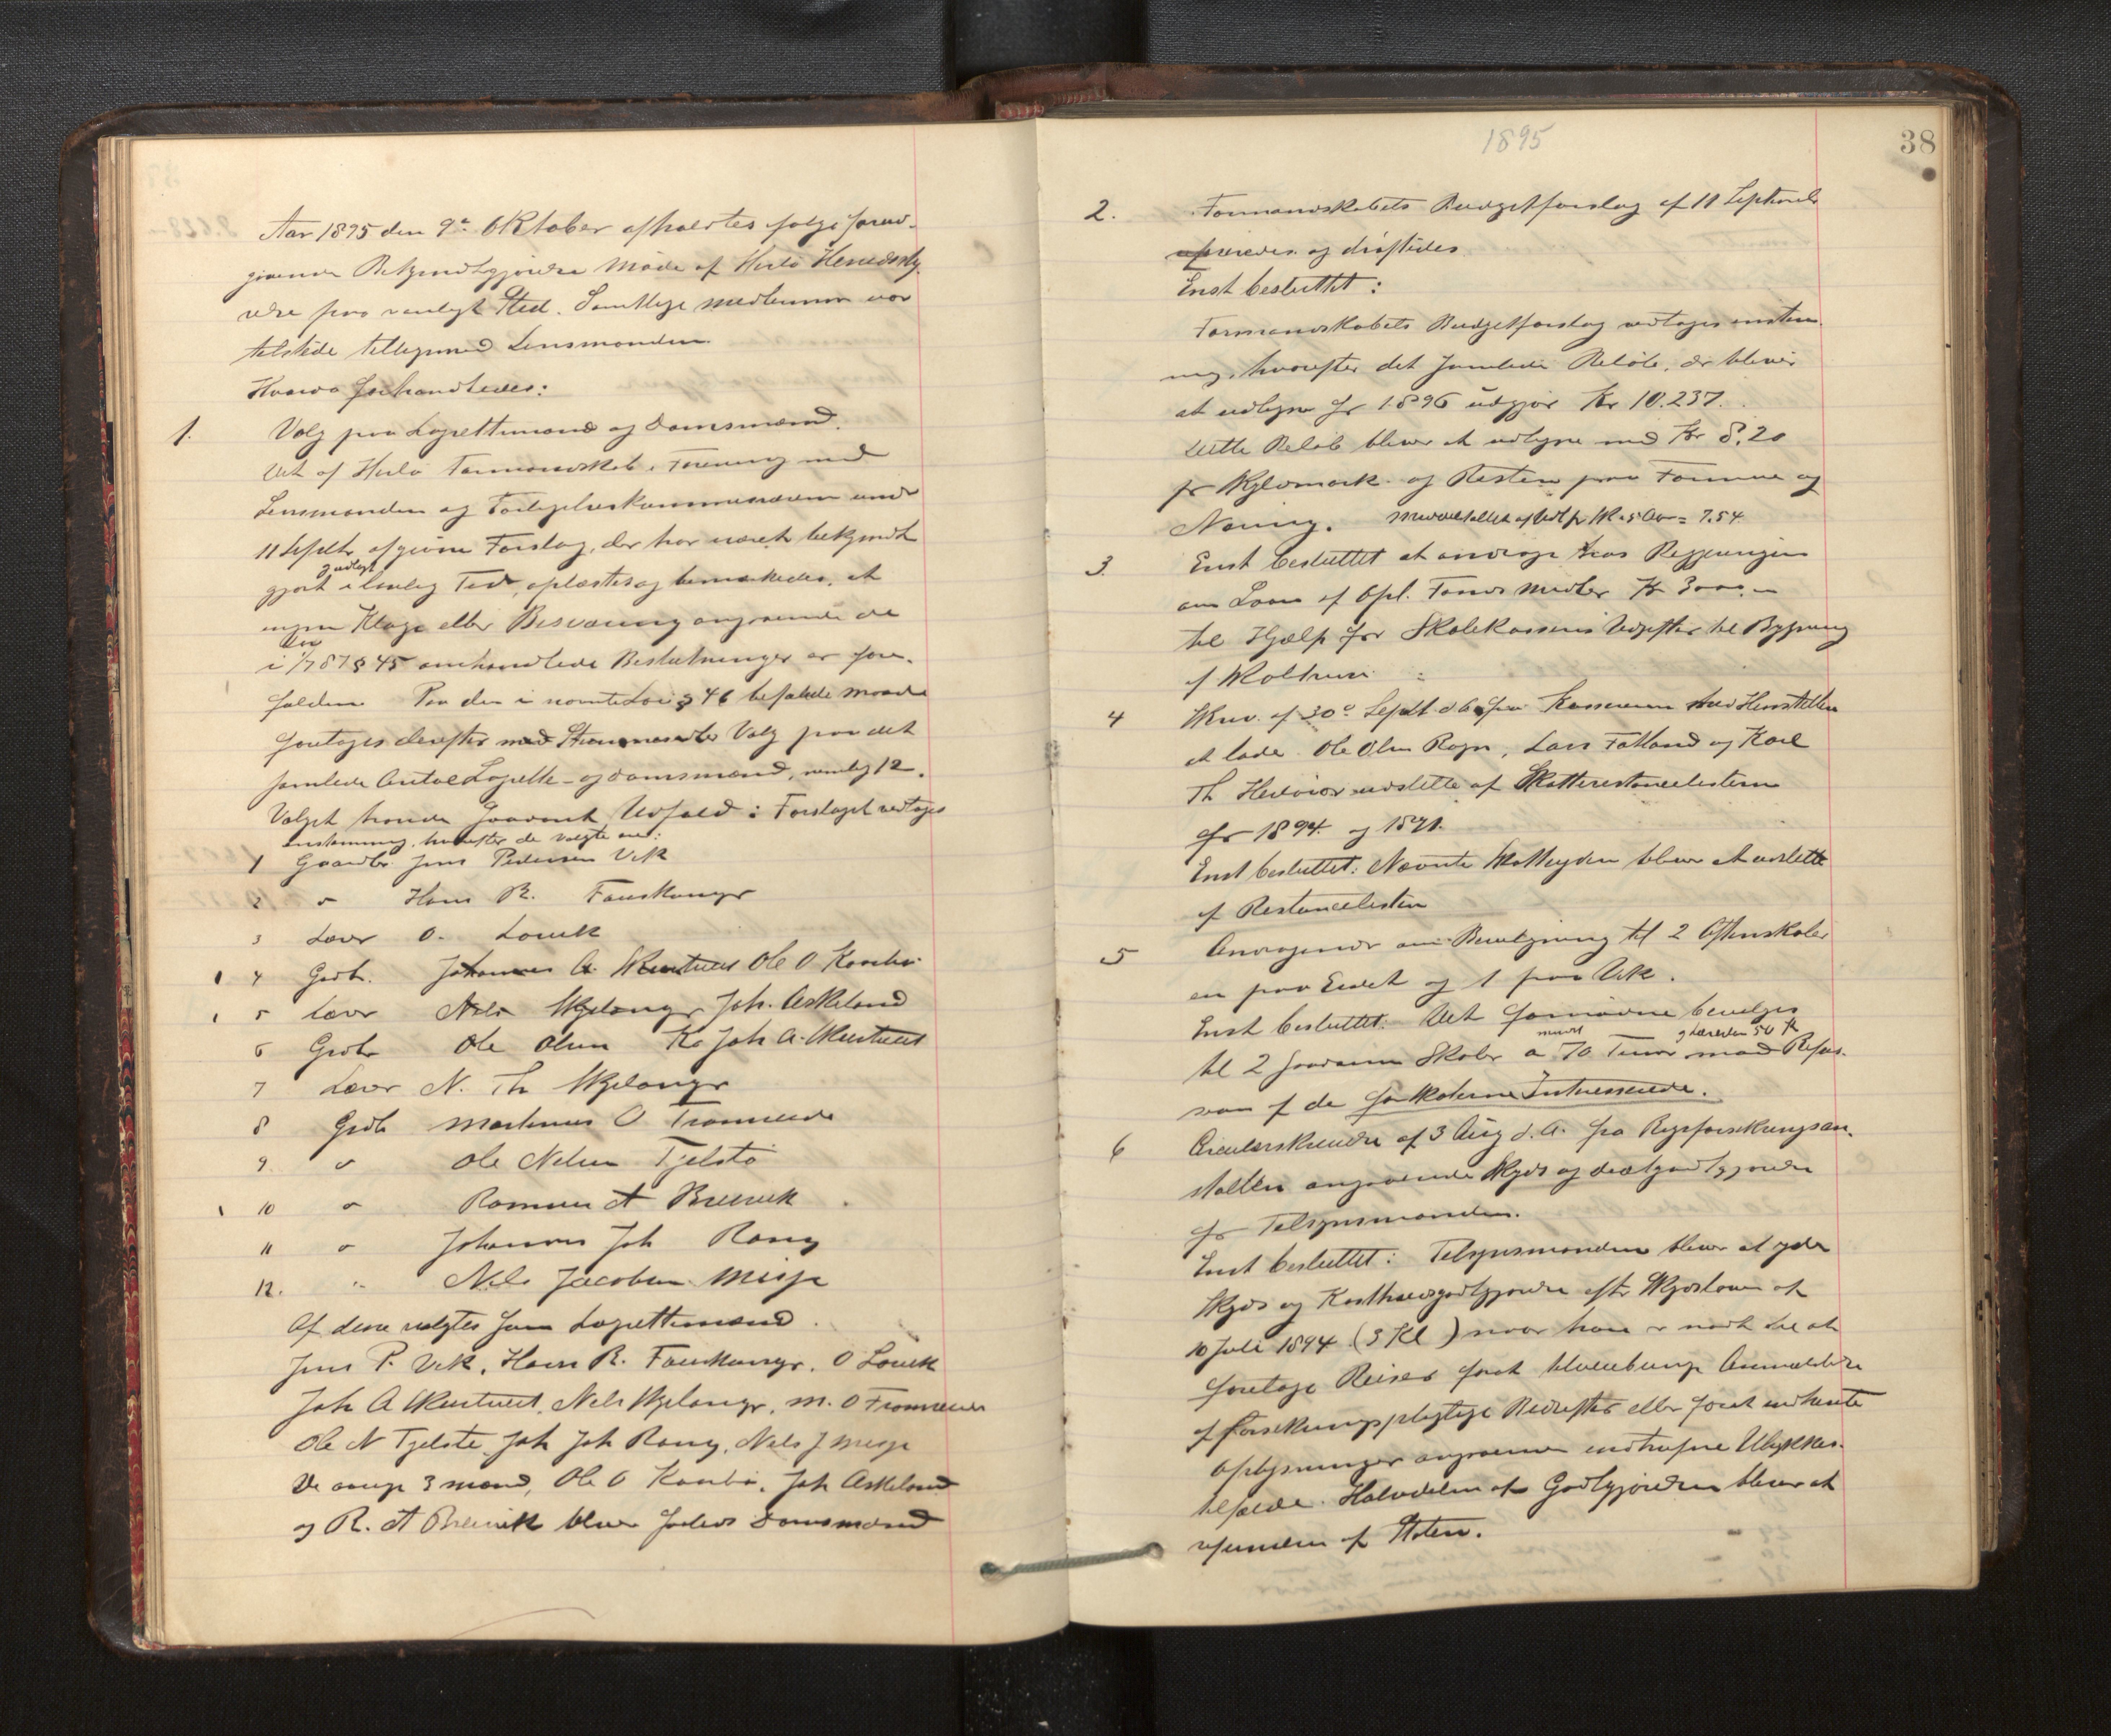 Aar 1895 den 9de Oktober afholdtes følge forud-
givende Bekjendtgjørelse Møde af Herlø Herredssty-
relse paa vanligt Sted. Samtlige Medlemmer var
tilstede tilligemed Lensmanden.
Hvorda forhandledes:
1. Valg paa Lagrettemænd og Domsmænd.
Det af Herlø Formandskab i Forening med
Lensmanden og Forligelseskommissærerne under
11 Septbr afgivne Forslag, der har været bekjendt
gjort i lovlig Tid, oplæstes og bemærkedes, at
ingen Klage eller Besværing angaaende de
i Lov 1/7 87 § 45 omhandlede Beslutninger er fore-
falden. Paa den i nævnte Lov § 46 befalede Maade
foretoges derefter med Stemmesedler Valg paa det
samlede Antal Lagrette- og Domsmænd, nemlig 12.
Valget havde saadant Udfald: Forslaget vedtoges
enstemmig, hvorefter de valgte ere:
1 Gaardbr. Jens Pedersen Vik
2 " Hans R. Fauskanger
3 Lærer O. Louik
4 Grdb. Johannes A. Skurtveit Ole O Kaarbø
5 Lærer Nils Skjelanger Joh. Askeland
6 Grdbr Ole Olsen Ka Joh A. Skurtveit
7 Lærer N. Th Skjelanger
8 Grdb Martinus O Tromsede
9 " Ole Nelsen Tjelstø
10 " Rasmus A Breivik
11 " Johannes Joh Rong
12. " Nils Jacobsen Misje
Af disse valgtes som Lagrettemænd
Jens P. Vik, Hans R. Fauskanger, O Louik
Joh A Skurtveit, Nils Skjelanger, M. O
Ole N Tjelstø, Joh Joh Rong, Nels J Misje
De øvrige 3 Mænd, Ole O Kaarbø, Joh Askeland
og R. A Breivik bliver saaledes Domsmænd
1895
38
2. Formandskabets Budgetforslag af 11 September
refereredes og drøftedes
Enst besluttet:
Formandskabets Budgetforslag vedtages enstem-
mig, hvorefter det samlede Beløb, der bliver
at udligne for 1896 udgjør Kr 10.237.
Dette Beløb bliver at udligne med Kr 8.20
pr Skyldmark og Resten paa Formue og
Næring. Middeltallet af Udl pr Mk 5 Aar = 7.54
3. Enst besluttet at andrage hos Regjeringen
om Laan af Opl. Fonds Midler Kr 3000,-
til Hjælp for Skolekassens Udgifter til Bygning
af Skolhuse
4 Skriv. af 30te Septbr d.A. fra Kassereren med Henstillen
at lade Ole Olsen Rogn, Lars Fatland og Karl
Th Herløvær udslette af Skatterestancelisterne
for 1894 og 1891.
Enst besluttet: Nævnte Skatteydere bliver at udslette
af Restancelisten
5 Andragende om Bevilgning til 2 Aftenskoler
en paa Eidet og 1 paa Vik.
Enst besluttet: Det fornødne bevilges
til 2 saadanne Skoler a mindst 70 Timer og Læreren 50 Kr mod Refus-
sion af de for Skolerne Interesserede.
6 Circulærskrivelse af 3 Aug d.A. fra Rigsforsikringsan-
stalten angaaende Skyds og Diætgodtgjørelse
for Tilsynsmanden.
Enst besluttet: Tilsynsmanden bliver at yde
Skyds og Kostholdsgodtgjørelse efter Skydsloven af
10 Juli 1894 (3 Kl) naar han er nødt til at
foretage Reiser forat tilveiebringe Anmeldelse
af forsikringspligtige Bedrifter eller forat indhente
Oplysninger angaaende indtrufne Ulykkes-
tilfælde. Halvdelen af Godtgjørelsen bliver at
refundere af Staten.